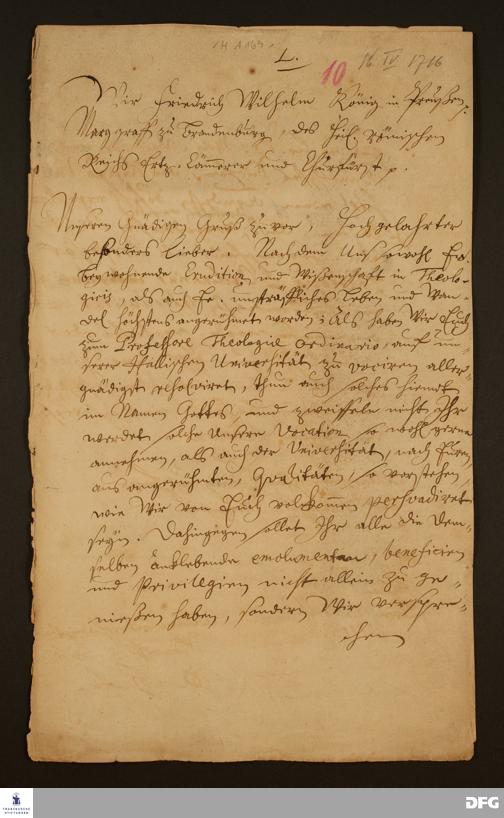 /H A 169/
L.
10 16 IV 1716
Wir Friedrich Wilhelm König in Preußen p.
Marggraff zu Brandenburg, des Heil. Römischen
Reichs Ertz-Cämmerer und Churfürst p.
Unseren Gnädigen Gruß zuvor, Hochgelahrter
besonders Lieber. Nachdem Uns sowohl Ew.
beywohnende Erudition und Wißenschafft in Theolo-
gicis, als auch Ew. unsträffliches Leben und Wan-
del höchstens angerühmet worden; Als haben Wir Euch
zum Professore Theologiae ordinario, auf un-
serer Hallischen Universität, zu vociren aller-
gnädigst resolviret, thun auch solches hiemit
im Namen Gottes, und zweiffeln nicht, Ihr
werdet solche Unsere Vocation so wohl gerne
annehmen, als auch der Universität, nach Euren
uns angerühmten Qualitäten, so vorstehen,
wie Wir von Euch vollkommen persuadiret
seyn. Dahingegen sollet Ihr alle die dem-
selben anklebende emolumenten, beneficien
und Privilegien nicht allein zu ge-
nießen haben, sondern Wir verspre-
chen
FRANCKESCHE STIFTUNGEN
DFG